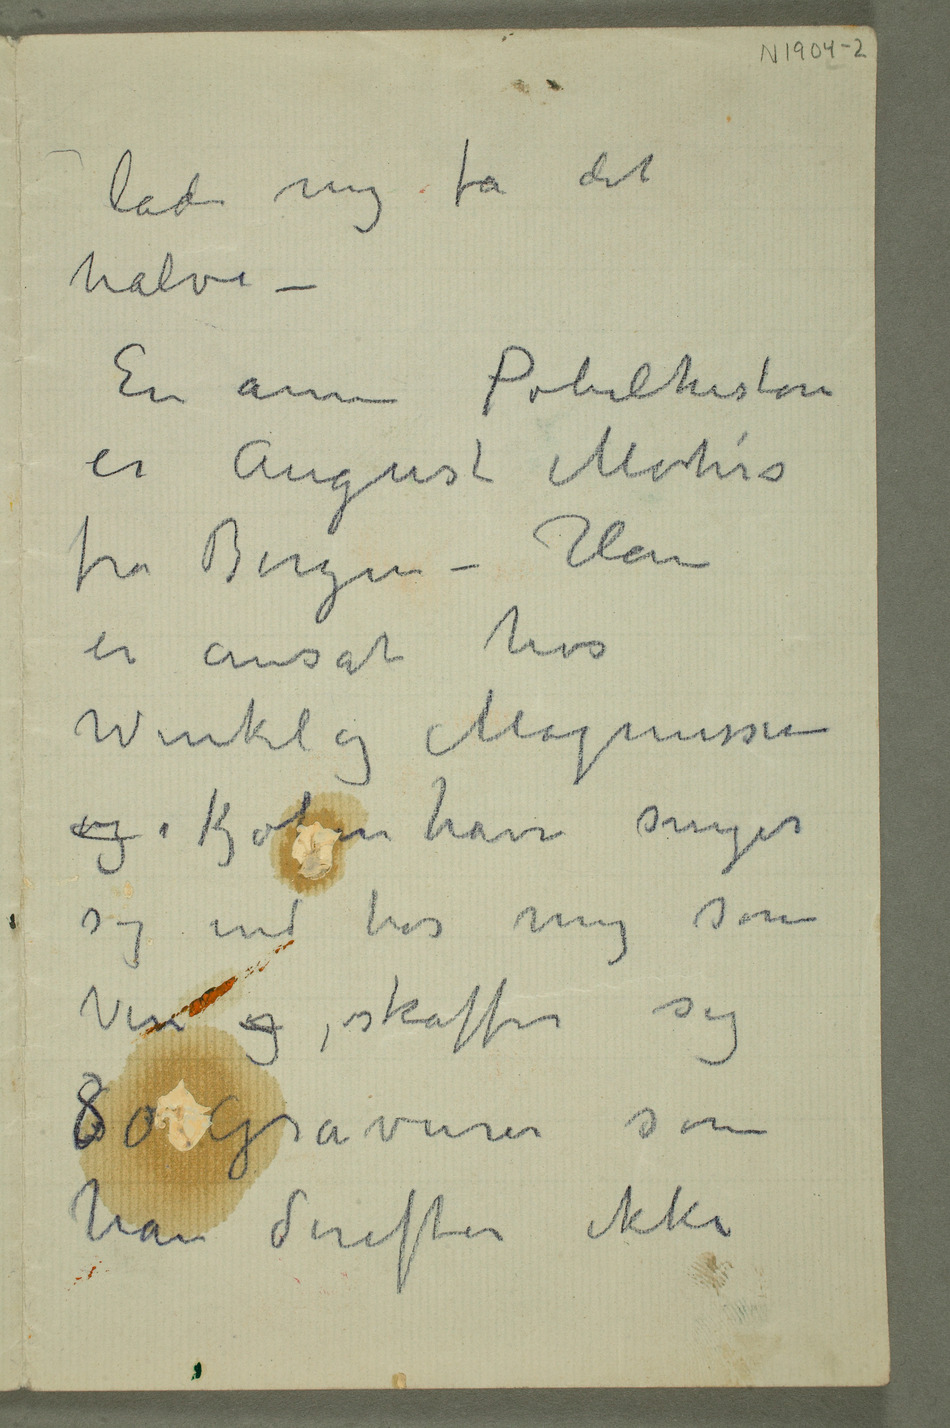 N1904-2
lade mig få det
halve –
En annen Pøbelhistorie
er August Mohrs
fra Bergen – Han
er ansat hos
Winkel og Magnussen
og i Kjøbenhavn sniger
sig ind hos mig som
Ven og, skaffer sig
80 Gravurer som
han derefter ikke